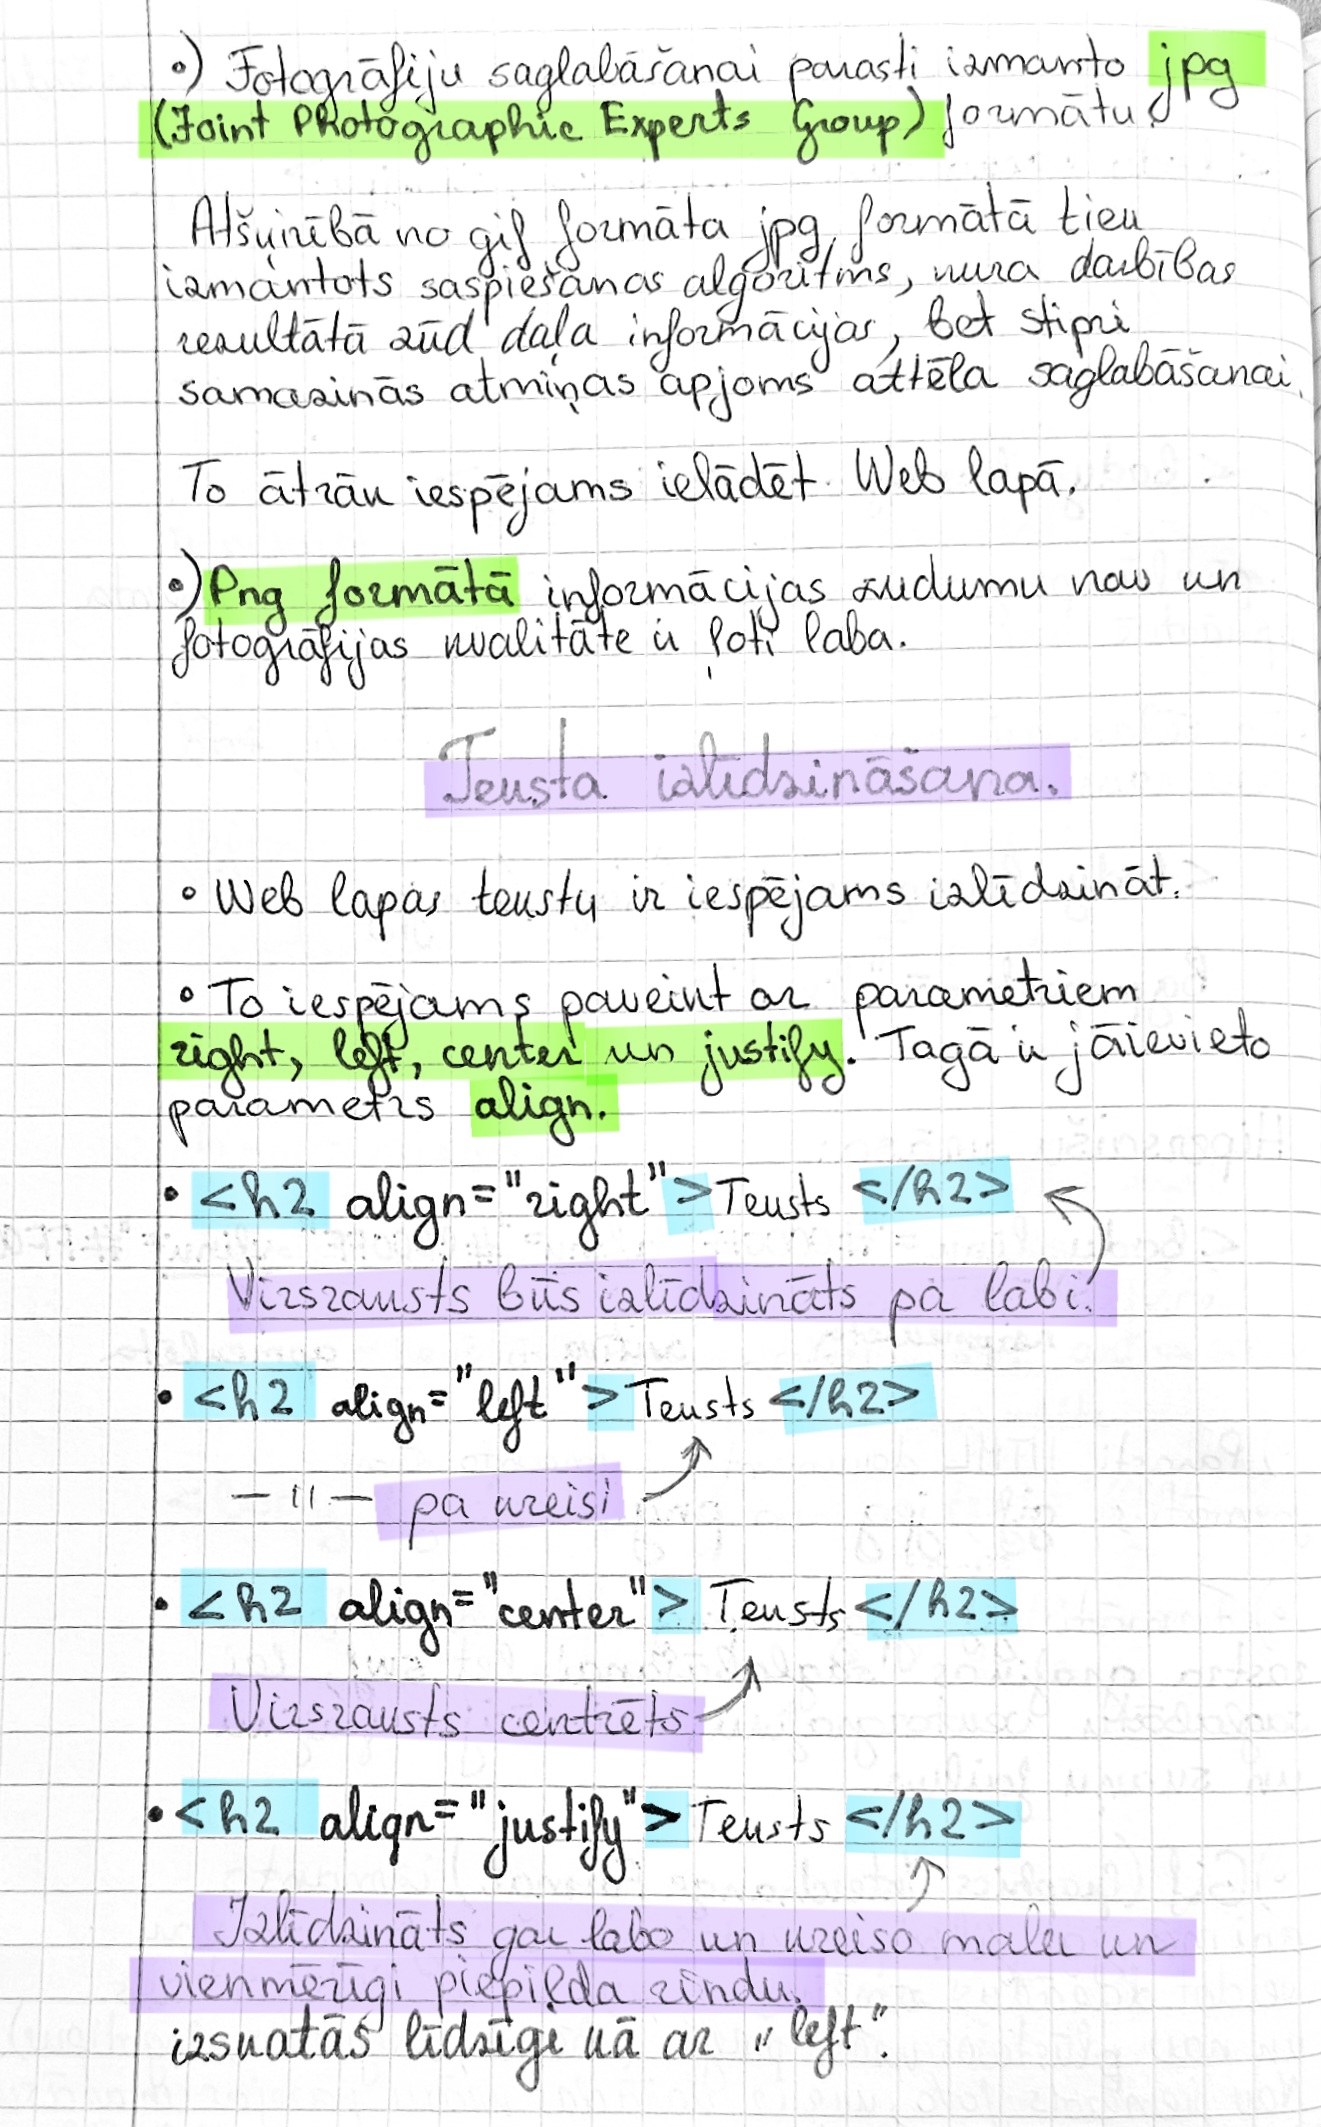 •) Fotogrāfiju saglabāšanai parasti izmanto jpg
(Joint Photographic Experts Group) formātu.
Atšķirībā no gif formāta jpg formātā tiek
izmantots saspiešanas algoritms, kura darbības
rezultātā zūd daļa informācijas, bet stipri
samazinās atmiņas apjoms attēla saglabāšanai.
To ātrāk iespējams ielādēt Web lapā.
•) Png formātā informācijas zudumu nav un
fotogrāfijas kvalitāte ir ļoti laba.
Teksta izlīdzināšana.
• Web lapas tekstu ir iespējams izlīdzināt.
• To iespējams paveikt ar parametriem
right, left, center un justify. Tagā ir jāievieto
parametrs align.
• <h2 align="right">Teksts </h2>
Virsraksts būs izlīdzināts pa labi.
• <h2 align="left">Teksts </h2>
—"— pa kreisi
• <h2 align="center"> Teksts </h2>
Virsraksts centrēts
• <h2 align="justify">Teksts </h2>
Izlīdzināts gar labo un kreiso malu un
vienmērīgi piepilda rindu.
izskatās līdzīgi kā ar „left".